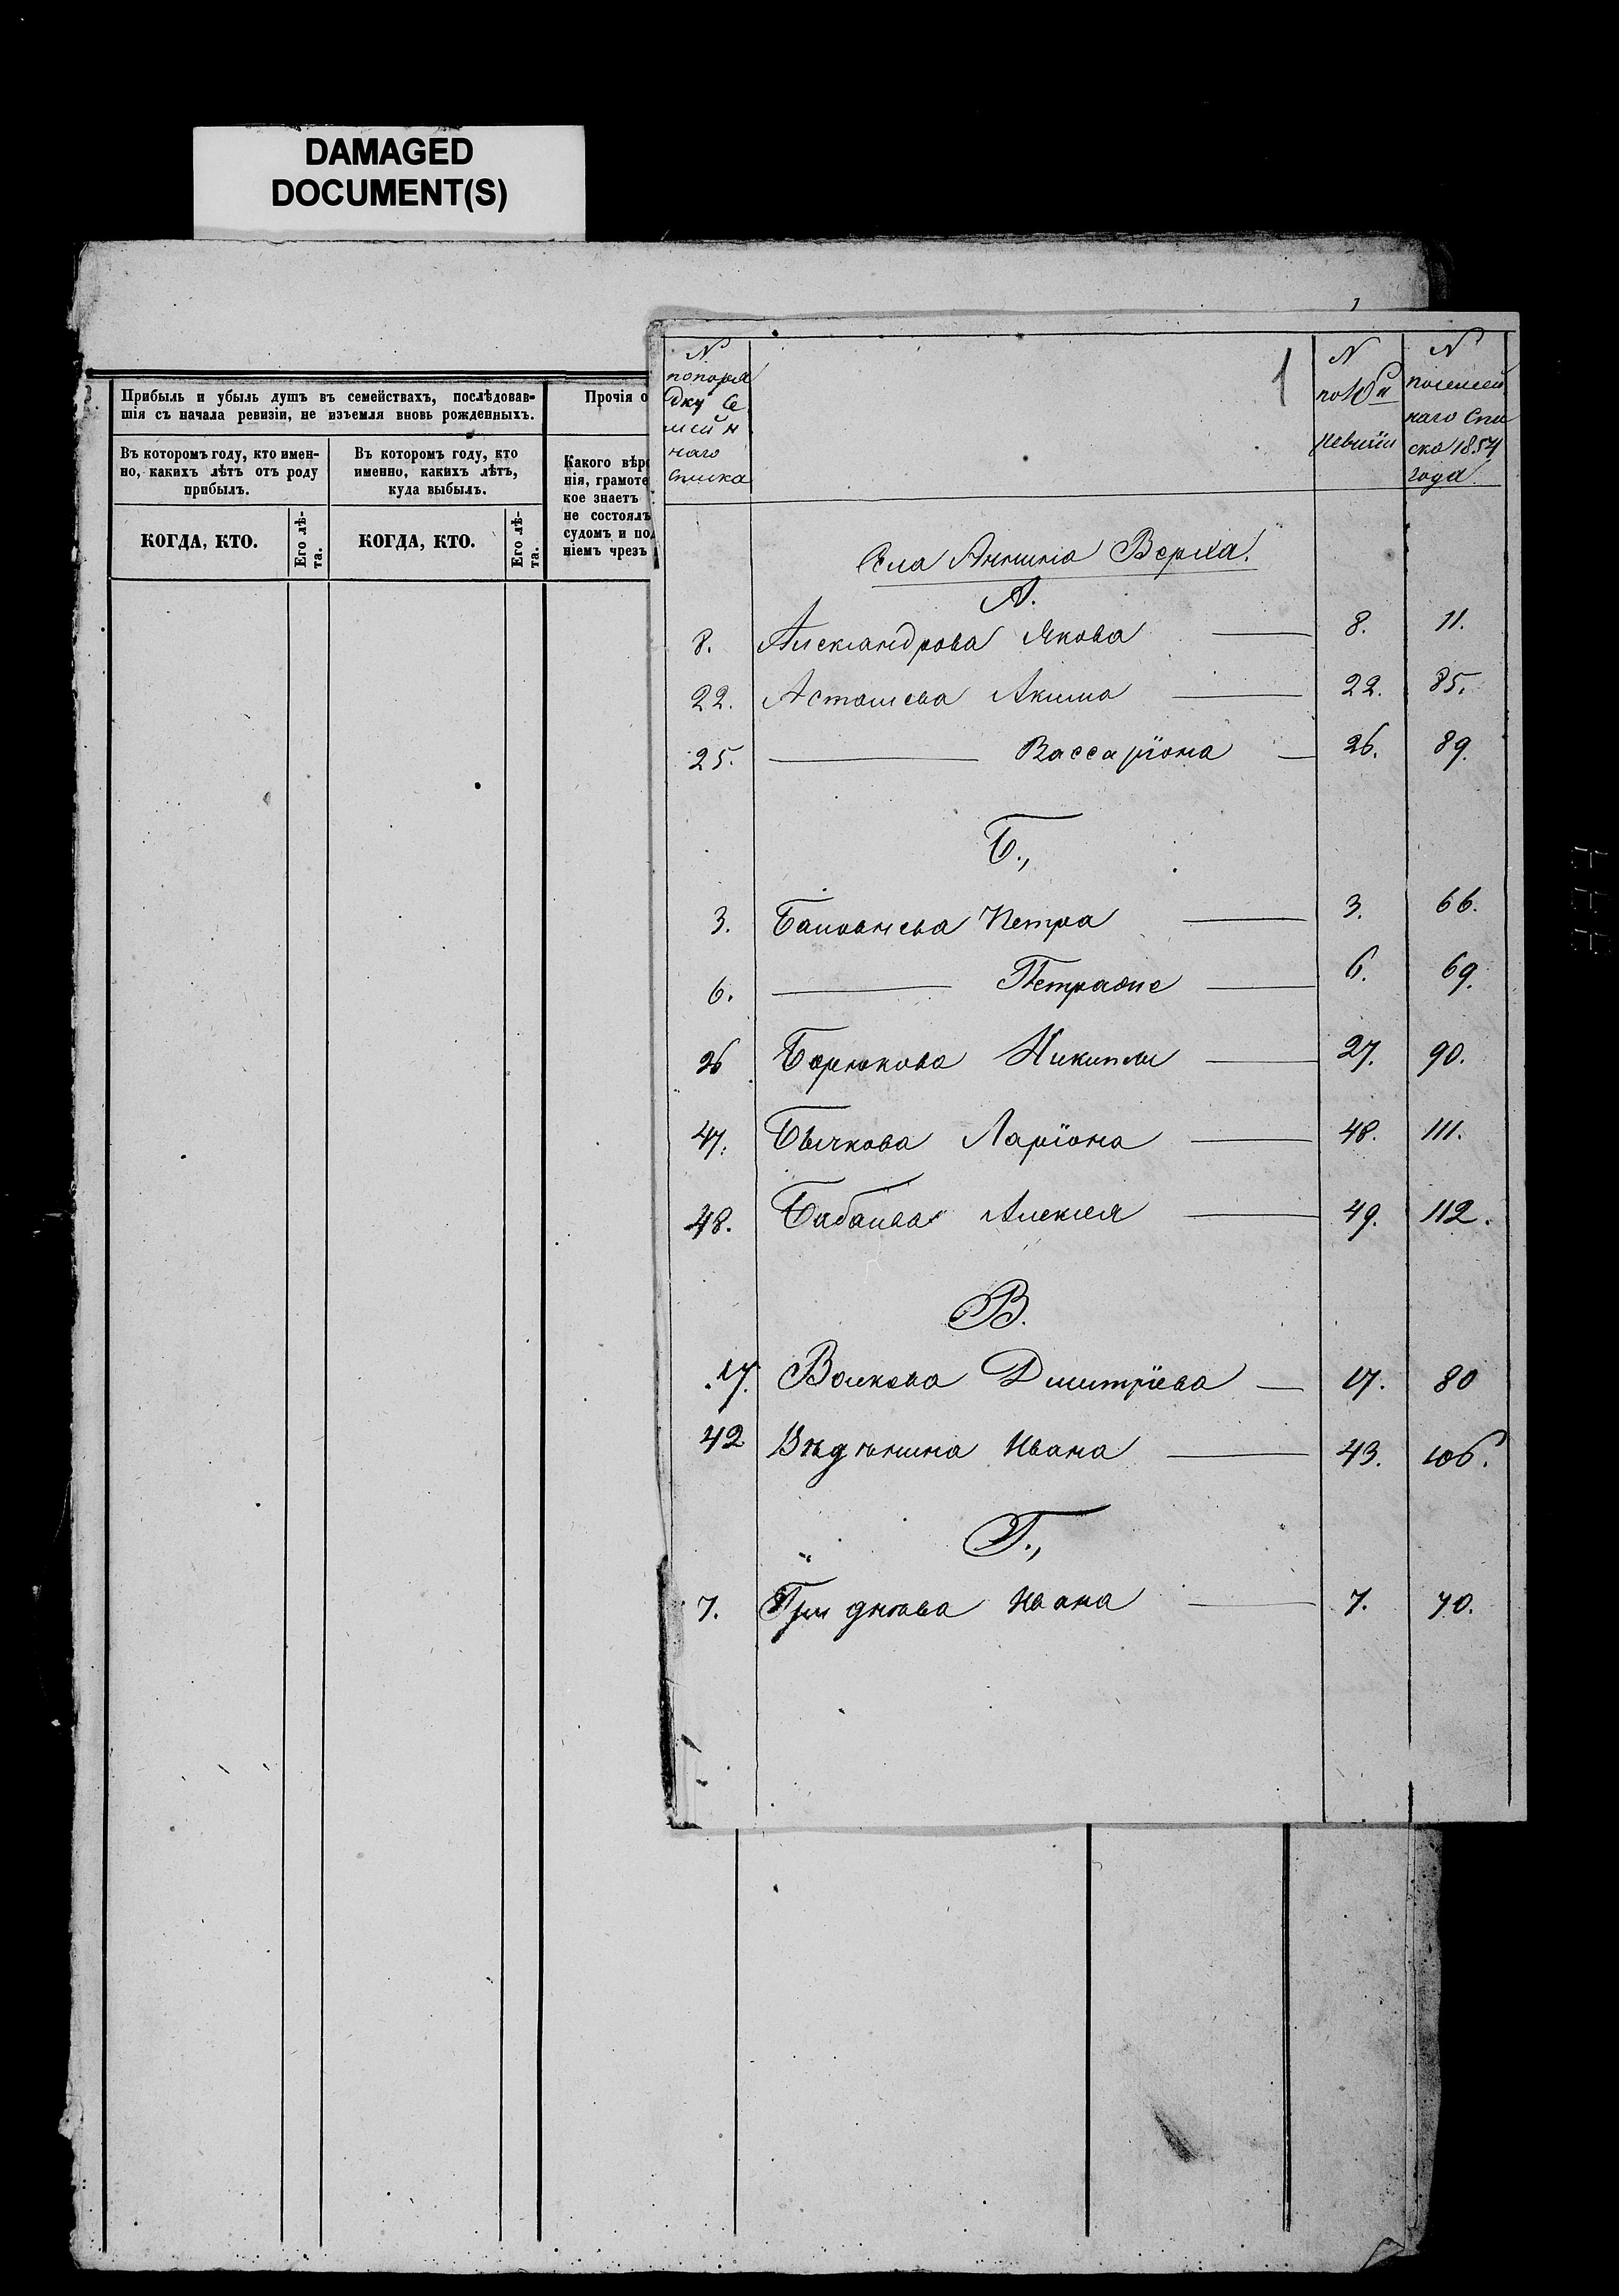 DAMAGED
DOCUMENT(S)
Прибыль и убыль душъ въ семействахъ, послѣдовав-
шія съ начала ревизіи, не изъемля вновь рожденныхъ.
Въ которомъ году, кто имен-
но, какихъ лѣтъ отъ роду
прибылъ.
Въ которомъ году, кто
именно, какихъ лѣтъ,
куда выбылъ.
КОГДА, КТО.
Его лѣ-
та.
КОГДА, КТО.
Его лѣ-
та.
Прочія о
Какого вѣр
нія, грамоте
кое знаетъ
не состоялъ
судомъ и по
ніемъ чрезъ
1
№
попоря
дку Се
мейн
наго
списка
1
№
по 10й
ревизіи
№
посемей
наго Спи
ска 1854
года
Села Аннина Верха.
А.
8. Александрова Якова 8. 11.
22. Асташева Акима 22. 85.
25. Вассаріона 26. 89.
Б.,
3. Петра 3. 66.
6. 6. 69.
26 Борюкова Никиты 27. 90.
47. Бычкова Ларіона 48. 111.
48. Алексея 49. 112.
В.
17. Волкова Дмитріева 17. 80
42 Ивана 43. 106.
Г.,
7. Гриднева Ивана 7. 70.